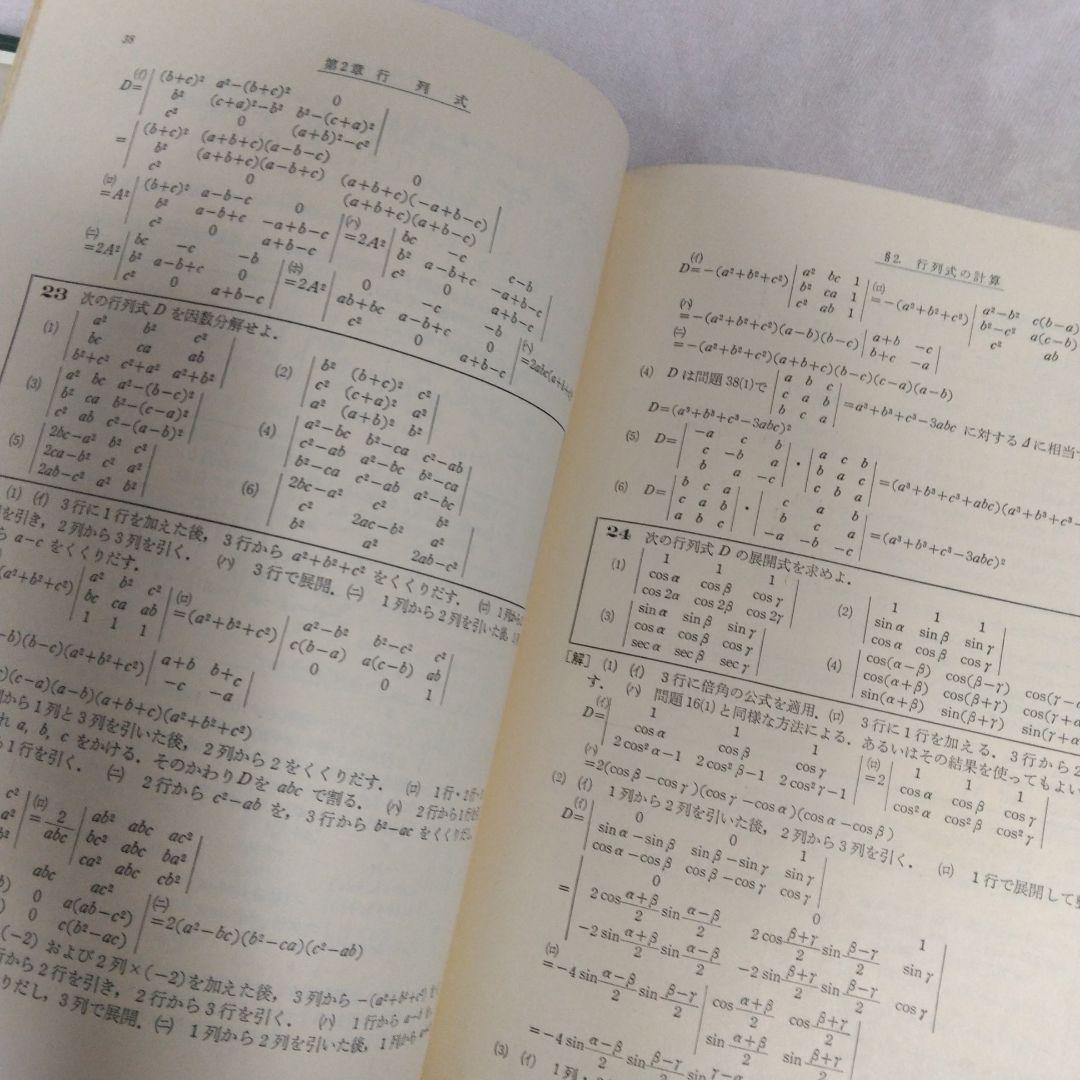 38
第2章 行 列 式
(イ)
D=| (b+c)² a²−(b+c)² 0
b² (c+a)²−b² b²−(c+a)²
c² 0 (a+b)²−c² |
=| (b+c)² (a+b+c)(a−b−c) 0
b² (a+b+c)(a−b+c) (a+b+c)(−a+b−c)
c² 0 (a+b+c)(a+b−c) |
(ロ)
=A²| (b+c)² a−b−c 0
b² a−b+c −a+b−c
c² 0 a+b−c |
(ハ)
=2A²| bc −c c−b
b² a−b+c −a+b−c
c² 0 a+b−c |
(ニ)
=2A²| bc −c −b
b² a−b+c 0
c² 0 a+b−c |
(ホ)
=2A²| 0 −c −b
ab+bc a−b+c 0
c² 0 a+b−c |
(ヘ)
=2abc(a+b+
23 次の行列式 D を因数分解せよ.
(1) | a² b² c²
bc ca ab
b²+c² c²+a² a²+b² |
(2) | b² (b+c)² c²
c² (c+a)² a²
a² (a+b)² b² |
(3) | a² bc a²−(b−c)²
b² ca b²−(c−a)²
c² ab c²−(a−b)² |
(4) | a²−bc b²−ca c²−ab
c²−ab a²−bc b²−ca
b²−ca c²−ab a²−bc |
(5) | 2bc−a² b² c²
2ca−b² c² a²
2ab−c² a² b² |
(6) | 2bc−a² c² b²
c² 2ac−b² a²
b² a² 2ab−c² |
(1) (イ) 3行に1行を加えた後, 3行から a²+b²+c² をくくりだす. (ロ) 1列から
を引き, 2列から3列を引く. (ハ) 3行で展開. (ニ) 1列から2列を引いた後,
ら a−c をくくりだす.
(a²+b²+c²)| a² b² c²
bc ca ab
1 1 1 |
(ロ)
=(a²+b²+c²)| a²−b² b²−c² c²
c(b−a) a(c−b) ab
0 0 1 |
−b)(b−c)(a²+b²+c²)| a+b b+c
−c −a |
c)(c−a)(a−b)(a+b+c)(a²+b²+c²)
から1列と3列を引いた後, 2列から2をくくりだす. (ロ) 1行・2行
れ a, b, c をかける. そのかわり D を abc で割る. (ハ) 2行から1行
1行を引く. (ニ) 2行から c²−ab を, 3行から b²−ac をくくりだ
c²
a²
b² |
(ロ)
=2/abc | ab² abc ac²
bc² abc ba²
ca² abc cb² |
abc ac²
0 a(ab−c²)
0 c(b²−ac) |
(ニ)
=2(a²−bc)(b²−ca)(c²−ab)
(−2) および2列×(−2)を加えた後, 3列から −(a²+b²+c²)
行から2行を引き, 2行から3行を引く. (ハ) 1行から
りだし, 3列で展開. (ニ) 1列から2列を引いた後, 1列から
§2. 行列式の計算
(イ)
D=−(a²+b²+c²)| a² bc 1
b² ca 1
c² ab 1 |
(ロ)
=−(a²+b²+c²)| a²−b² c(b−a)
b²−c² a(c−b)
c² ab
(ハ)
=−(a²+b²+c²)(a−b)(b−c)| a+b −c
b+c −a |
(ニ)
=−(a²+b²+c²)(a+b+c)(b−c)(c−a)(a−b)
(4) D は問題 38(1)で | a b c
c a b
b c a | =a³+b³+c³−3abc に対する Δ に相当
D=(a³+b³+c³−3abc)²
(5) D=| −a c b
c −b a
b a −c | · | a c b
b a c
c b a | =(a³+b³+c³+abc)(a³+b³+c³−
(6) D=| b c a
c a b
a b c | · | c a b
b c a
−a −b −c | =(a³+b³+c³−3abc)²
24 次の行列式 D の展開式を求めよ.
(1) | 1 1 1
cos α cos β cos γ
cos 2α cos 2β cos 2γ |
(2) | 1 1 1
sin α sin β sin γ
cos α cos β cos γ |
(3) | sin α sin β sin γ
cos α cos β cos γ
sec α sec β sec γ |
(4) | cos(α−β) cos(β−γ) cos(γ−α
cos(α+β) cos(β+γ) cos(γ+α
sin(α+β) sin(β+γ) sin(γ+α
[解] (1) (イ) 3行に倍角の公式を適用. (ロ) 3行に1行を加える. 3行から2
す. (ハ) 問題 16(1) と同様な方法による. あるいはその結果を使ってもよい
(イ)
D=| 1 1 1
cos α cos β cos γ
2 cos² α−1 2 cos² β−1 2 cos² γ−1 |
(ロ)
=2| 1 1 1
cos α cos β cos γ
cos² α cos² β cos² γ |
(ハ)
=2(cos β−cos γ)(cos γ−cos α)(cos α−cos β)
(2) (イ) 1列から2列を引いた後, 2列から3列を引く. (ロ) 1行で展開して
(イ)
D=| 0 0 1
sin α−sin β sin β−sin γ sin γ
cos α−cos β cos β−cos γ cos γ |
=| 0 0 1
2 cos (α+β)/2 sin (α−β)/2 2 cos (β+γ)/2 sin (β−γ)/2 sin γ
−2 sin (α+β)/2 sin (α−β)/2 −2 sin (β+γ)/2 sin (β−γ)/2 cos γ |
(ロ)
=−4 sin (α−β)/2 sin (β−γ)/2 | cos (α+β)/2 cos (β+γ)/2
sin (α+β)/2 sin (β+γ)/2 |
=−4 sin (α−β)/2 sin (β−γ)/2 sin (γ−α
(3) (イ) 1列